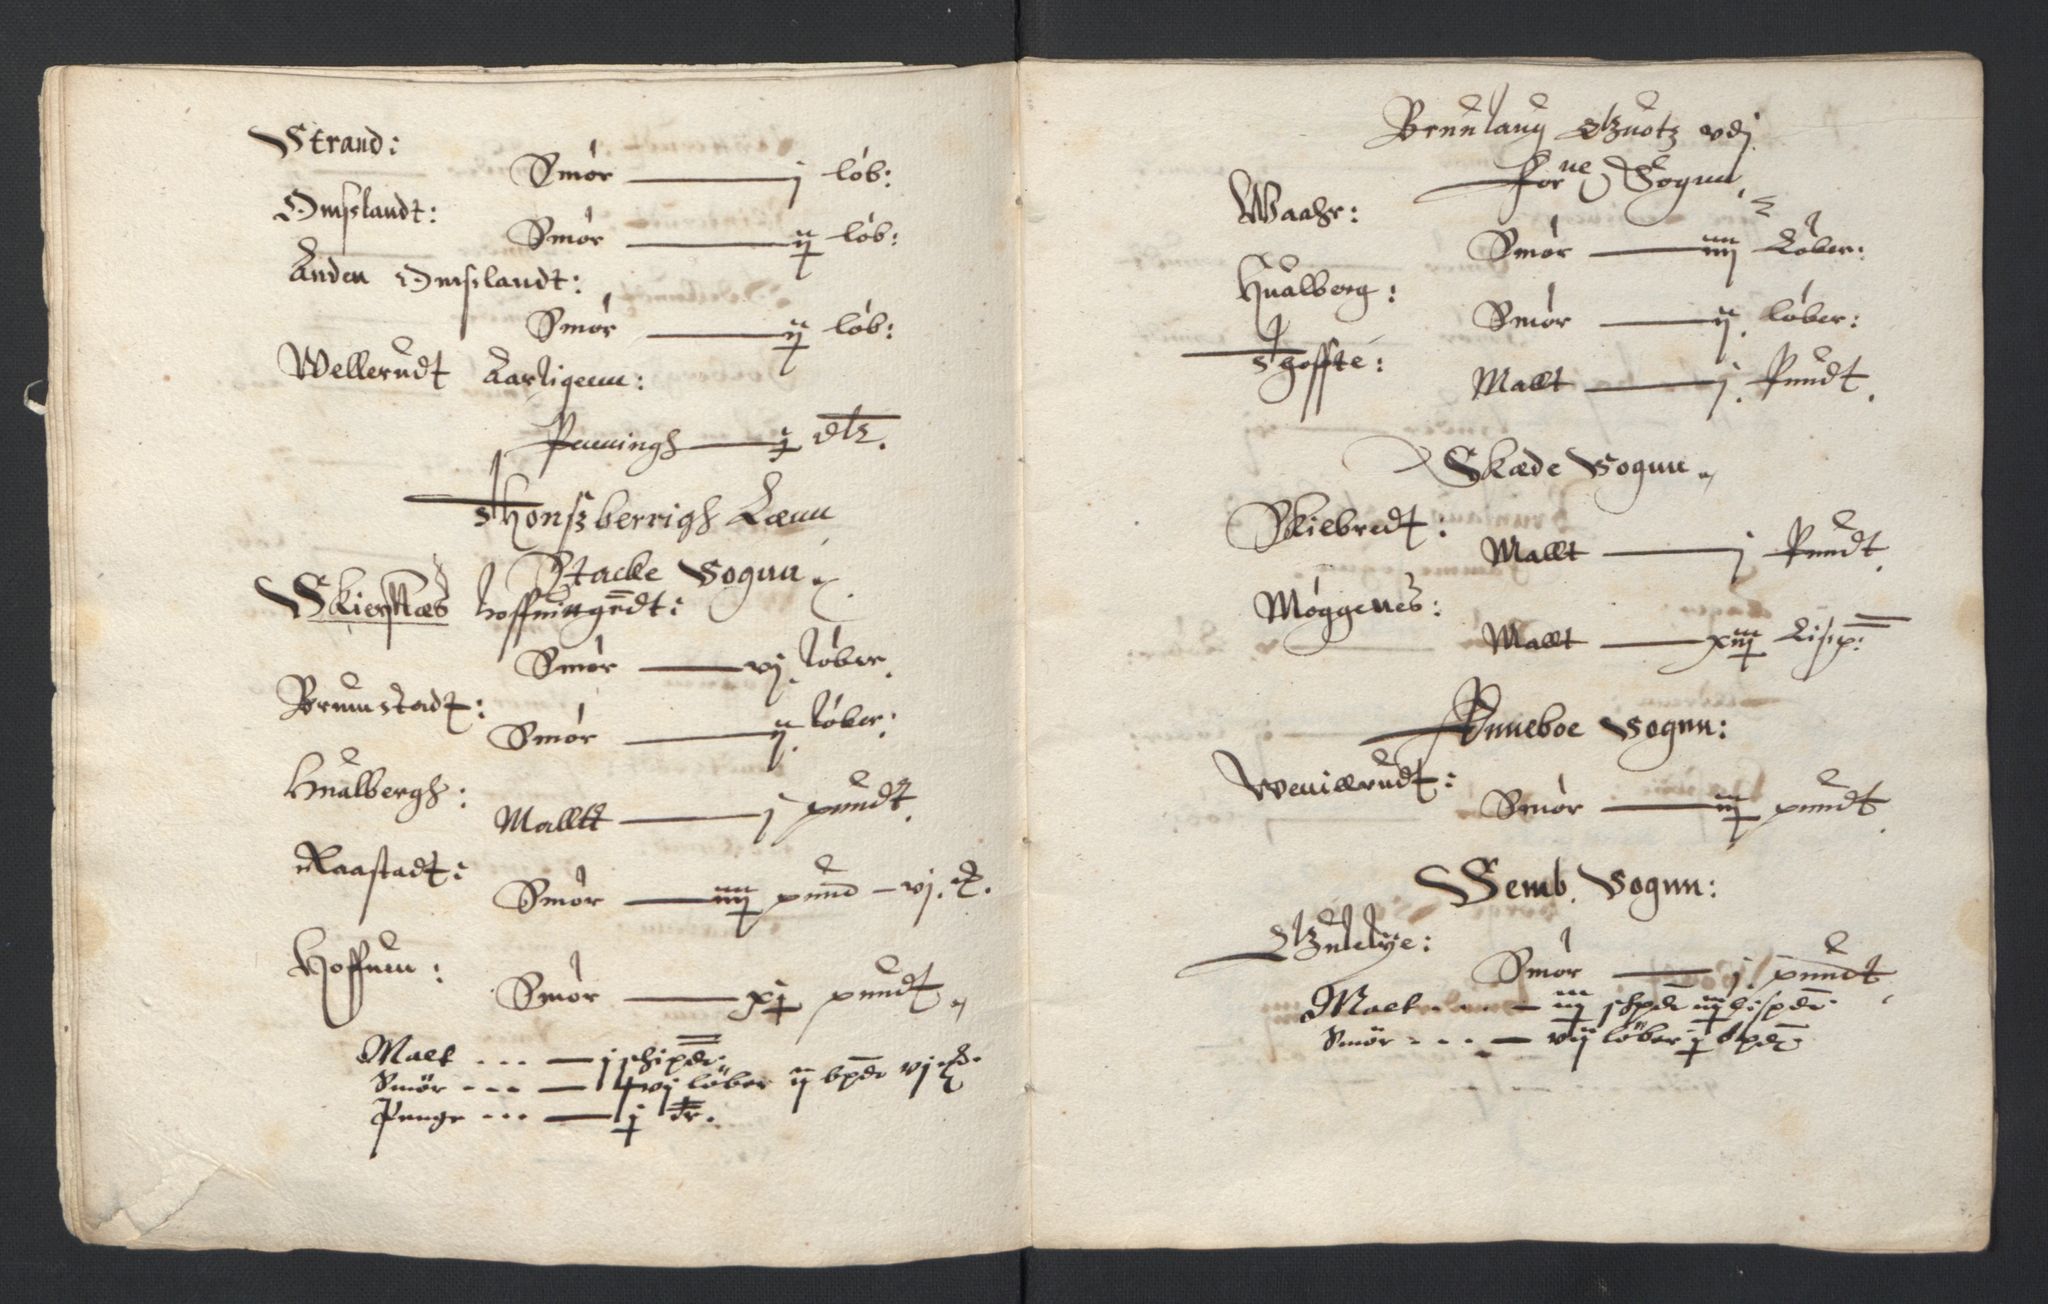 Strand:
Smør — j løb:
Omslandt:
Smør — ij løb:
Anden Omslandt:
Smør — ij løb:
Wellerudt Aarligenn:
Penningh — j dlr.
Thonszberrigh Læenn
Stacke Sognn
Skierffnes
Smør — vj løber.
Brunstadt:
Smør — ij løber:
Hualbergh:
Malltt — j pundt.
Raastadt:
Smør — iiij pund – vj. ℔.
Hoffum:
Smør — xj pundt
Malt ... — j schipdt
Smør ... — vj løber ij bpdt vj ℔
Penge ... — j dr.
Brunlaug udj
Forne Sognn
Waahr:
Smør — iiij Løber:
Hualberg:
Smør — ij løber:
Thoffte:
Malt — j. Pundt.
Skæde Sognn
Skiebredt:
Mallt — j Pundt.
Møggenes:
Mallt — xiij Lisp:
Anneboe Sognn:
Wenillrudt:
Smør — iij pundt.
Semb. Sognn:
Smør — j pundt
Malt ... — iij schpdt iij lispdt
Smør ... — vij løber j bpdt